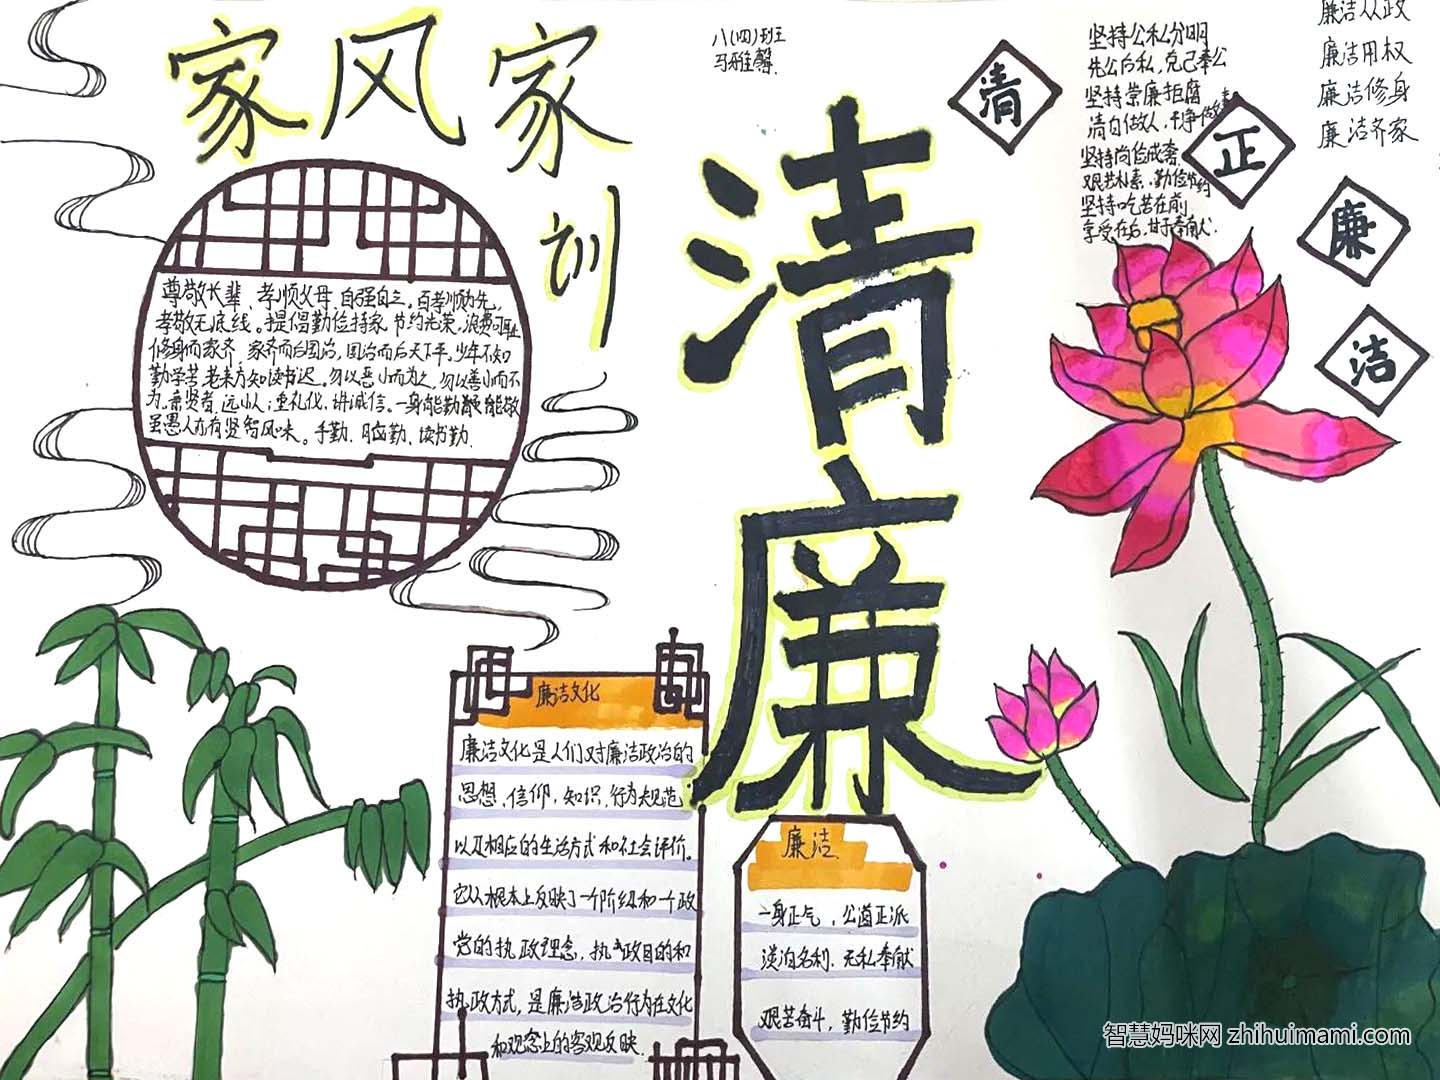 家风家训
八(四)班
尊敬长辈、孝顺父母,自强自立。百孝顺为先,
孝敬无底线。提倡勤俭持家 节约光荣,浪费可耻
修身而家齐,家齐而后国治,国治而后天下平。少年不知
勤学苦,老来方知读书迟。勿以恶小而为之,勿以善小而不
为,亲贤者,远小人;重礼仪,讲诚信。
虽愚人亦有贤智风味。手勤、脑勤、读书勤.
清廉
清
正
廉
洁
坚持公私分明
先公后私,克己奉公
坚持崇廉拒腐
清白做人,干净做事
坚持尚俭戒奢
艰苦朴素,勤俭节约
坚持吃苦在前
享受在后,甘于奉献.
廉洁从政
廉洁用权
廉洁修身
廉洁齐家
廉洁文化
廉洁文化是人们对廉洁政治的
思想、信仰、知识、行为规范
以及相应的生活方式和社会评价。
它从根本上反映了一个阶级和一个政
党的执政理念,执政目的和
执政方式,是廉洁政治行为在文化
和观念上的客观反映.
廉洁
一身正气,公道正派
淡泊名利、无私奉献
艰苦奋斗,勤俭节约
智慧妈咪网 zhihuimami.com